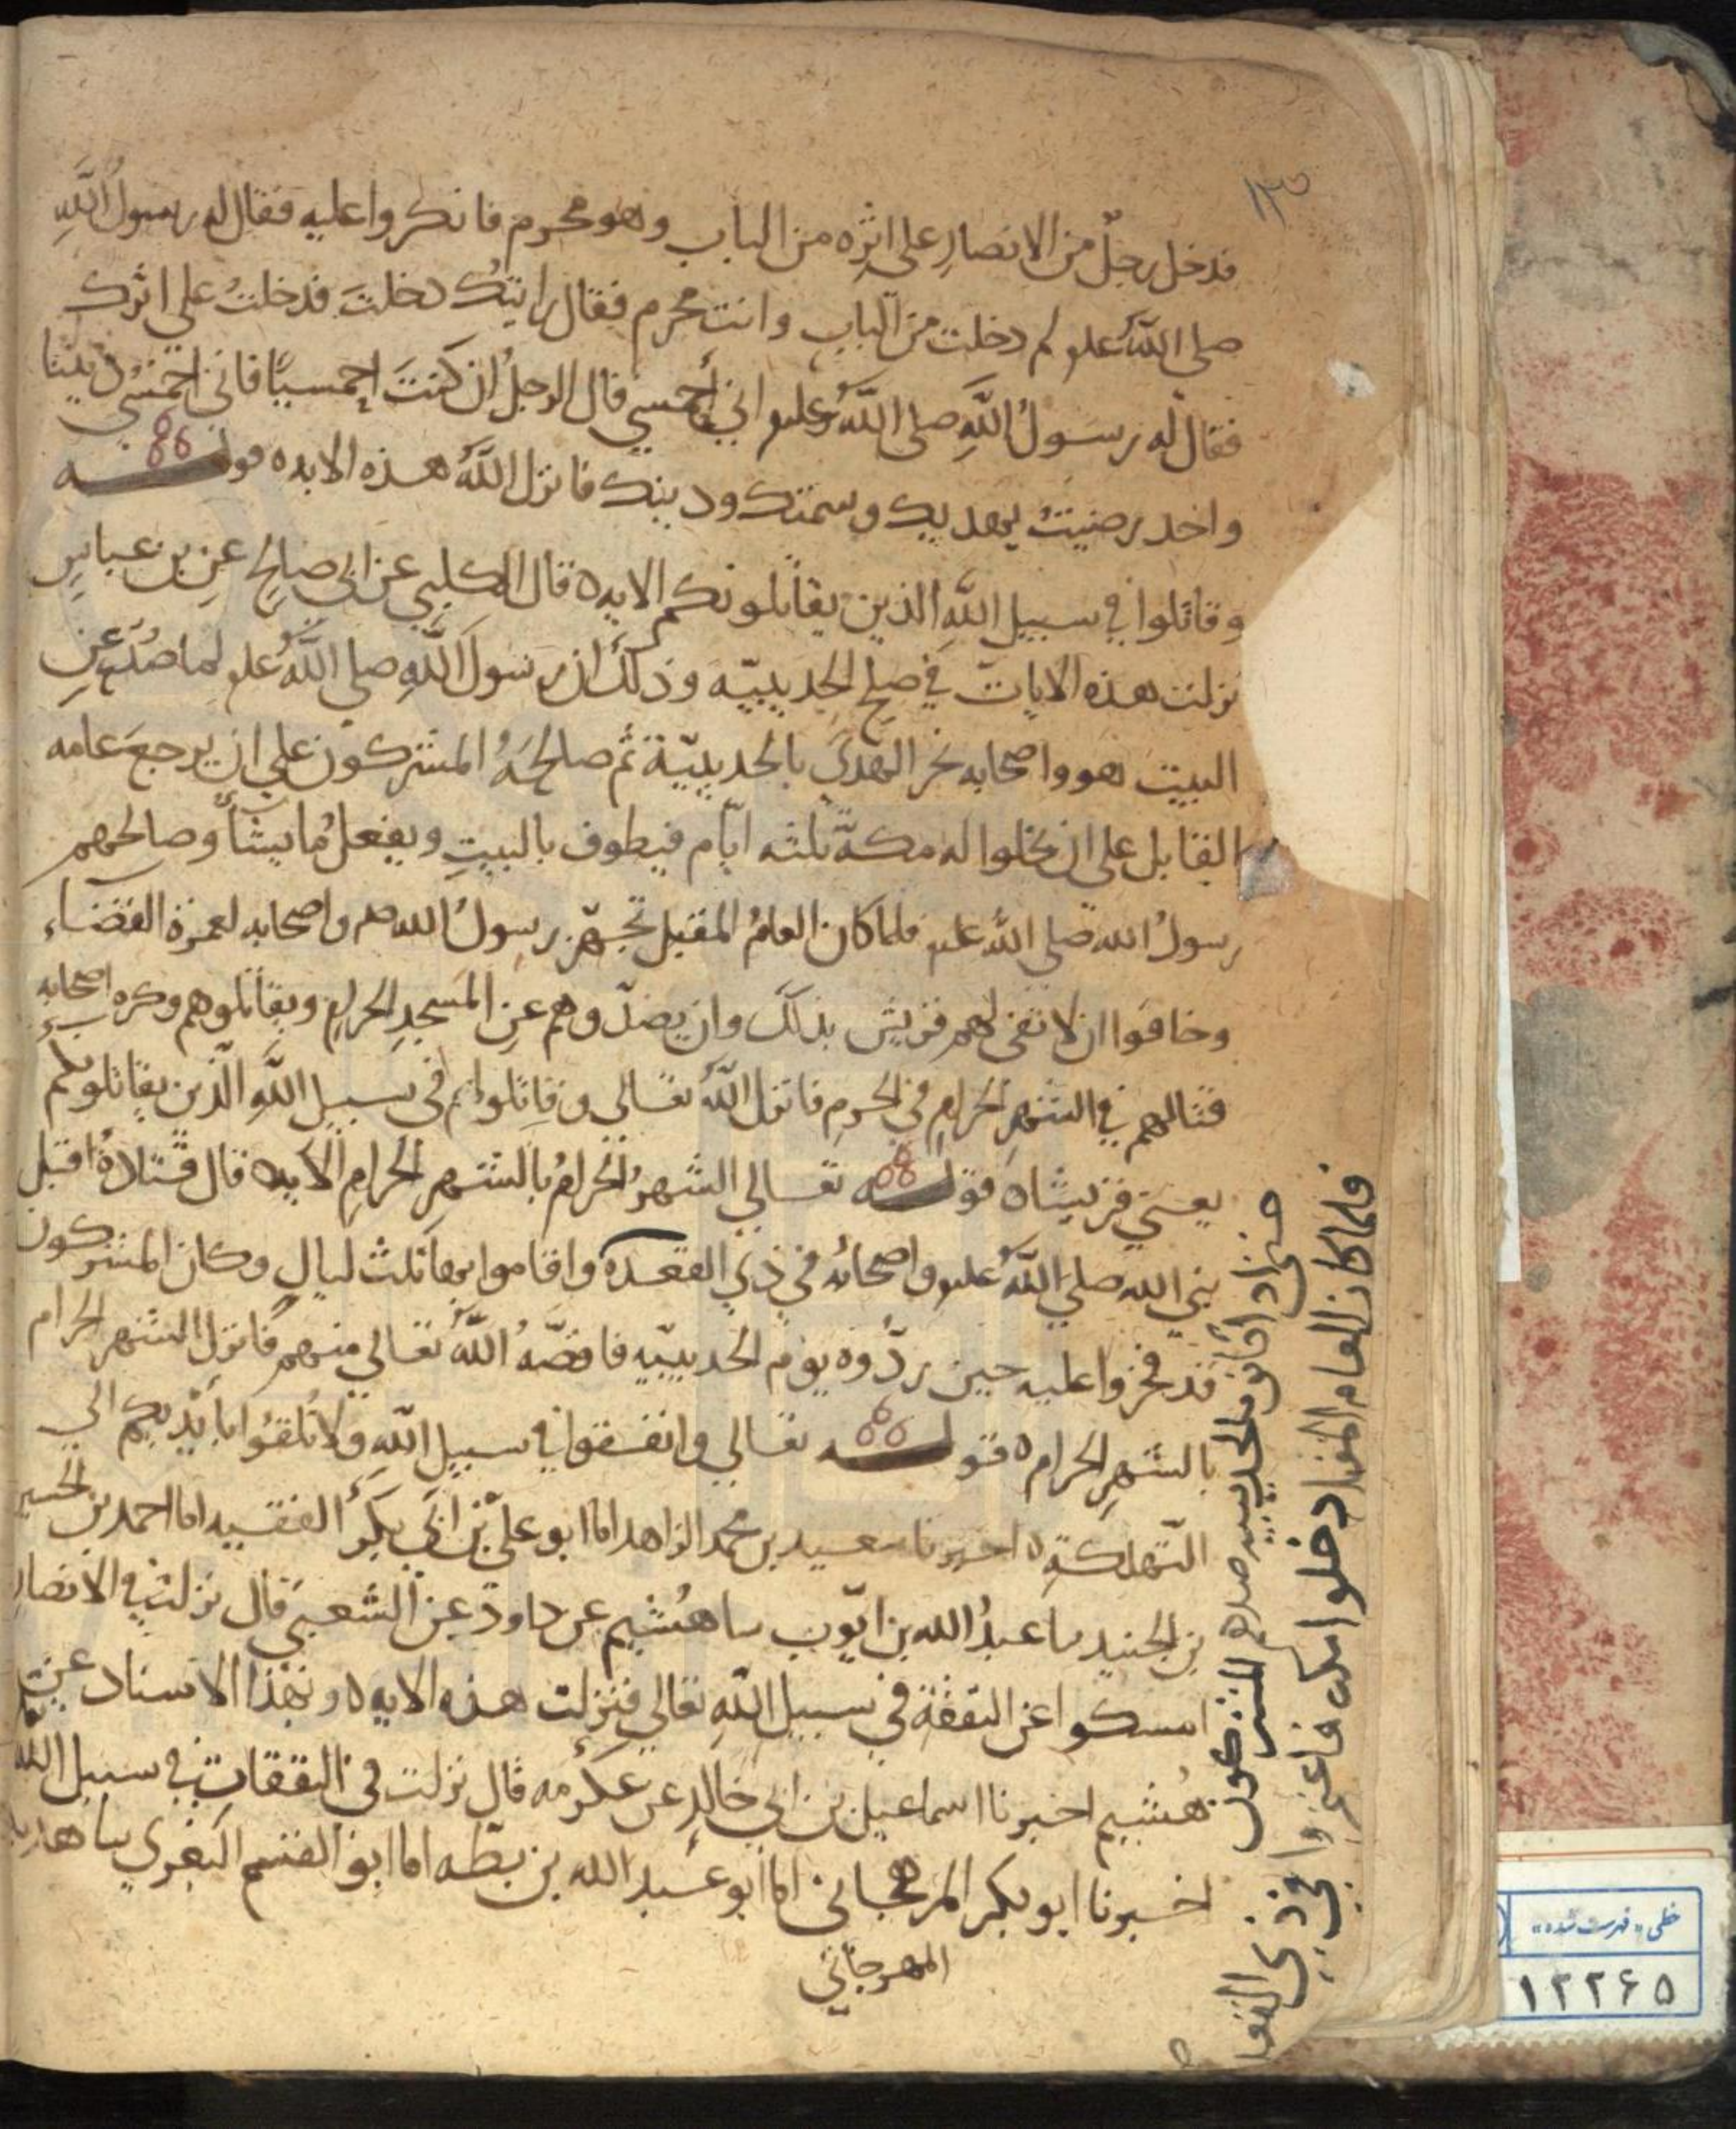 ١٣٥
فدخل رجلٌ من الانصارِ على اثرِه من الباب وهو محرم فانكروا عليه فقال له رسولُ اللَّهِ
صلى اللَّهُ علـ لم دخلت من الباب وانت محرم فقال رايتك دخلتَ فدخلتُ على اثرك
فقال له رسولُ اللَّهِ صلى اللَّهُ عليه اني أحمسي قال الرجلُ ان كنتَ احمسيًا فاني احمسي ديننا
واحد رضيتُ بهديك وسمتك ودينك فانزل اللَّهُ هذه الايه ٥ قولـــه
وقاتلوا في سبيل اللَّه الذين يقاتلونكم الايه ٥ قال الكلبي عن ابي صالحٍ عن بن عباسٍ
نزلت هذه الايات في صلح الحديبيّه وذلك ان رسولَ اللَّهِ صلى اللَّهُ علـ لما صُدّ عن
البيت هو واصحابه نحر الهدىَ بالحديبيّة ثم صالحَهُ المشركون على ان يرجعَ عامه
القابل على ان يخلوا له مكةَ ثلثه ايّام فيطوف بالبيتِ ويفعلُ ما يشأ وصالحهم
رسولُ الله صلى اللَّهُ عليه فلما كان العامُ المقبل تجهّز رسولُ الله صلم واصحابه لعمرة القضاء
وخافوا ان لا تفى لهم قريش بذلك وان يصدّوهم عن المسجدِ الحرامِ ويقاتلوهم وكره اصحابه
قتالهم في الشهرِ الحرامِ في الحرمِ فانزل اللَّهُ تعالى وقاتلوا في سبيل اللَّهِ الَّذين يقاتلونكم
يعني قريشا ٥ قولـــه تعالي الشهرُ الحرامُ بالشهرِ الحرامِ الايه ٥ قال قتادةُ اقبل
نبي الله صلي اللَّهُ عليه واصحابُه في ذي القعده واقاموا بها ثلث ليالٍ وكان المشركون
قد فخروا عليه حين ردّوه يوم الحديبيّه فاقصّهُ اللَّهُ تعالي منهم فانزل الشهر الحرام
بالشهرِ الحرام ٥ قولـــه تعالي وانفقوا في سبيل اللَّهِ ولا تُلقُوا بايْديكم الي
التهلكةِ ٥ اخبرنا سعيد بن محمد الزاهد انا ابو عليّ بن ابي بكر الفقيه انا احمد بن الحسين
بن الجنيد ثنا عبدُ الله بن ايّوب ثنا هُشيم عن داود عن الشعبي قال نزلت في الانصارِ
امسكوا عن النفقة في سبيل اللَّهِ تعالي فنزلت هذه الايه ٥ وبهذا الاسناد عن
هُشيم اخبرنا اسماعيل بن ابي خالدٍ عن عكرمه قال نزلت في النفقات في سبيل اللَّه
اخبرنا ابو بكر المرهجانى انا ابو عبد الله بن بطّه انا ابو القسم البغوي ثنا هدبه
المهرجاني
فلما كان العام المقبل دخلوا مكه فاعتمروا في ذي القعده
الحديبيه صدهم المشركون
خطى «فهرست شده»
١٢٢۶۵